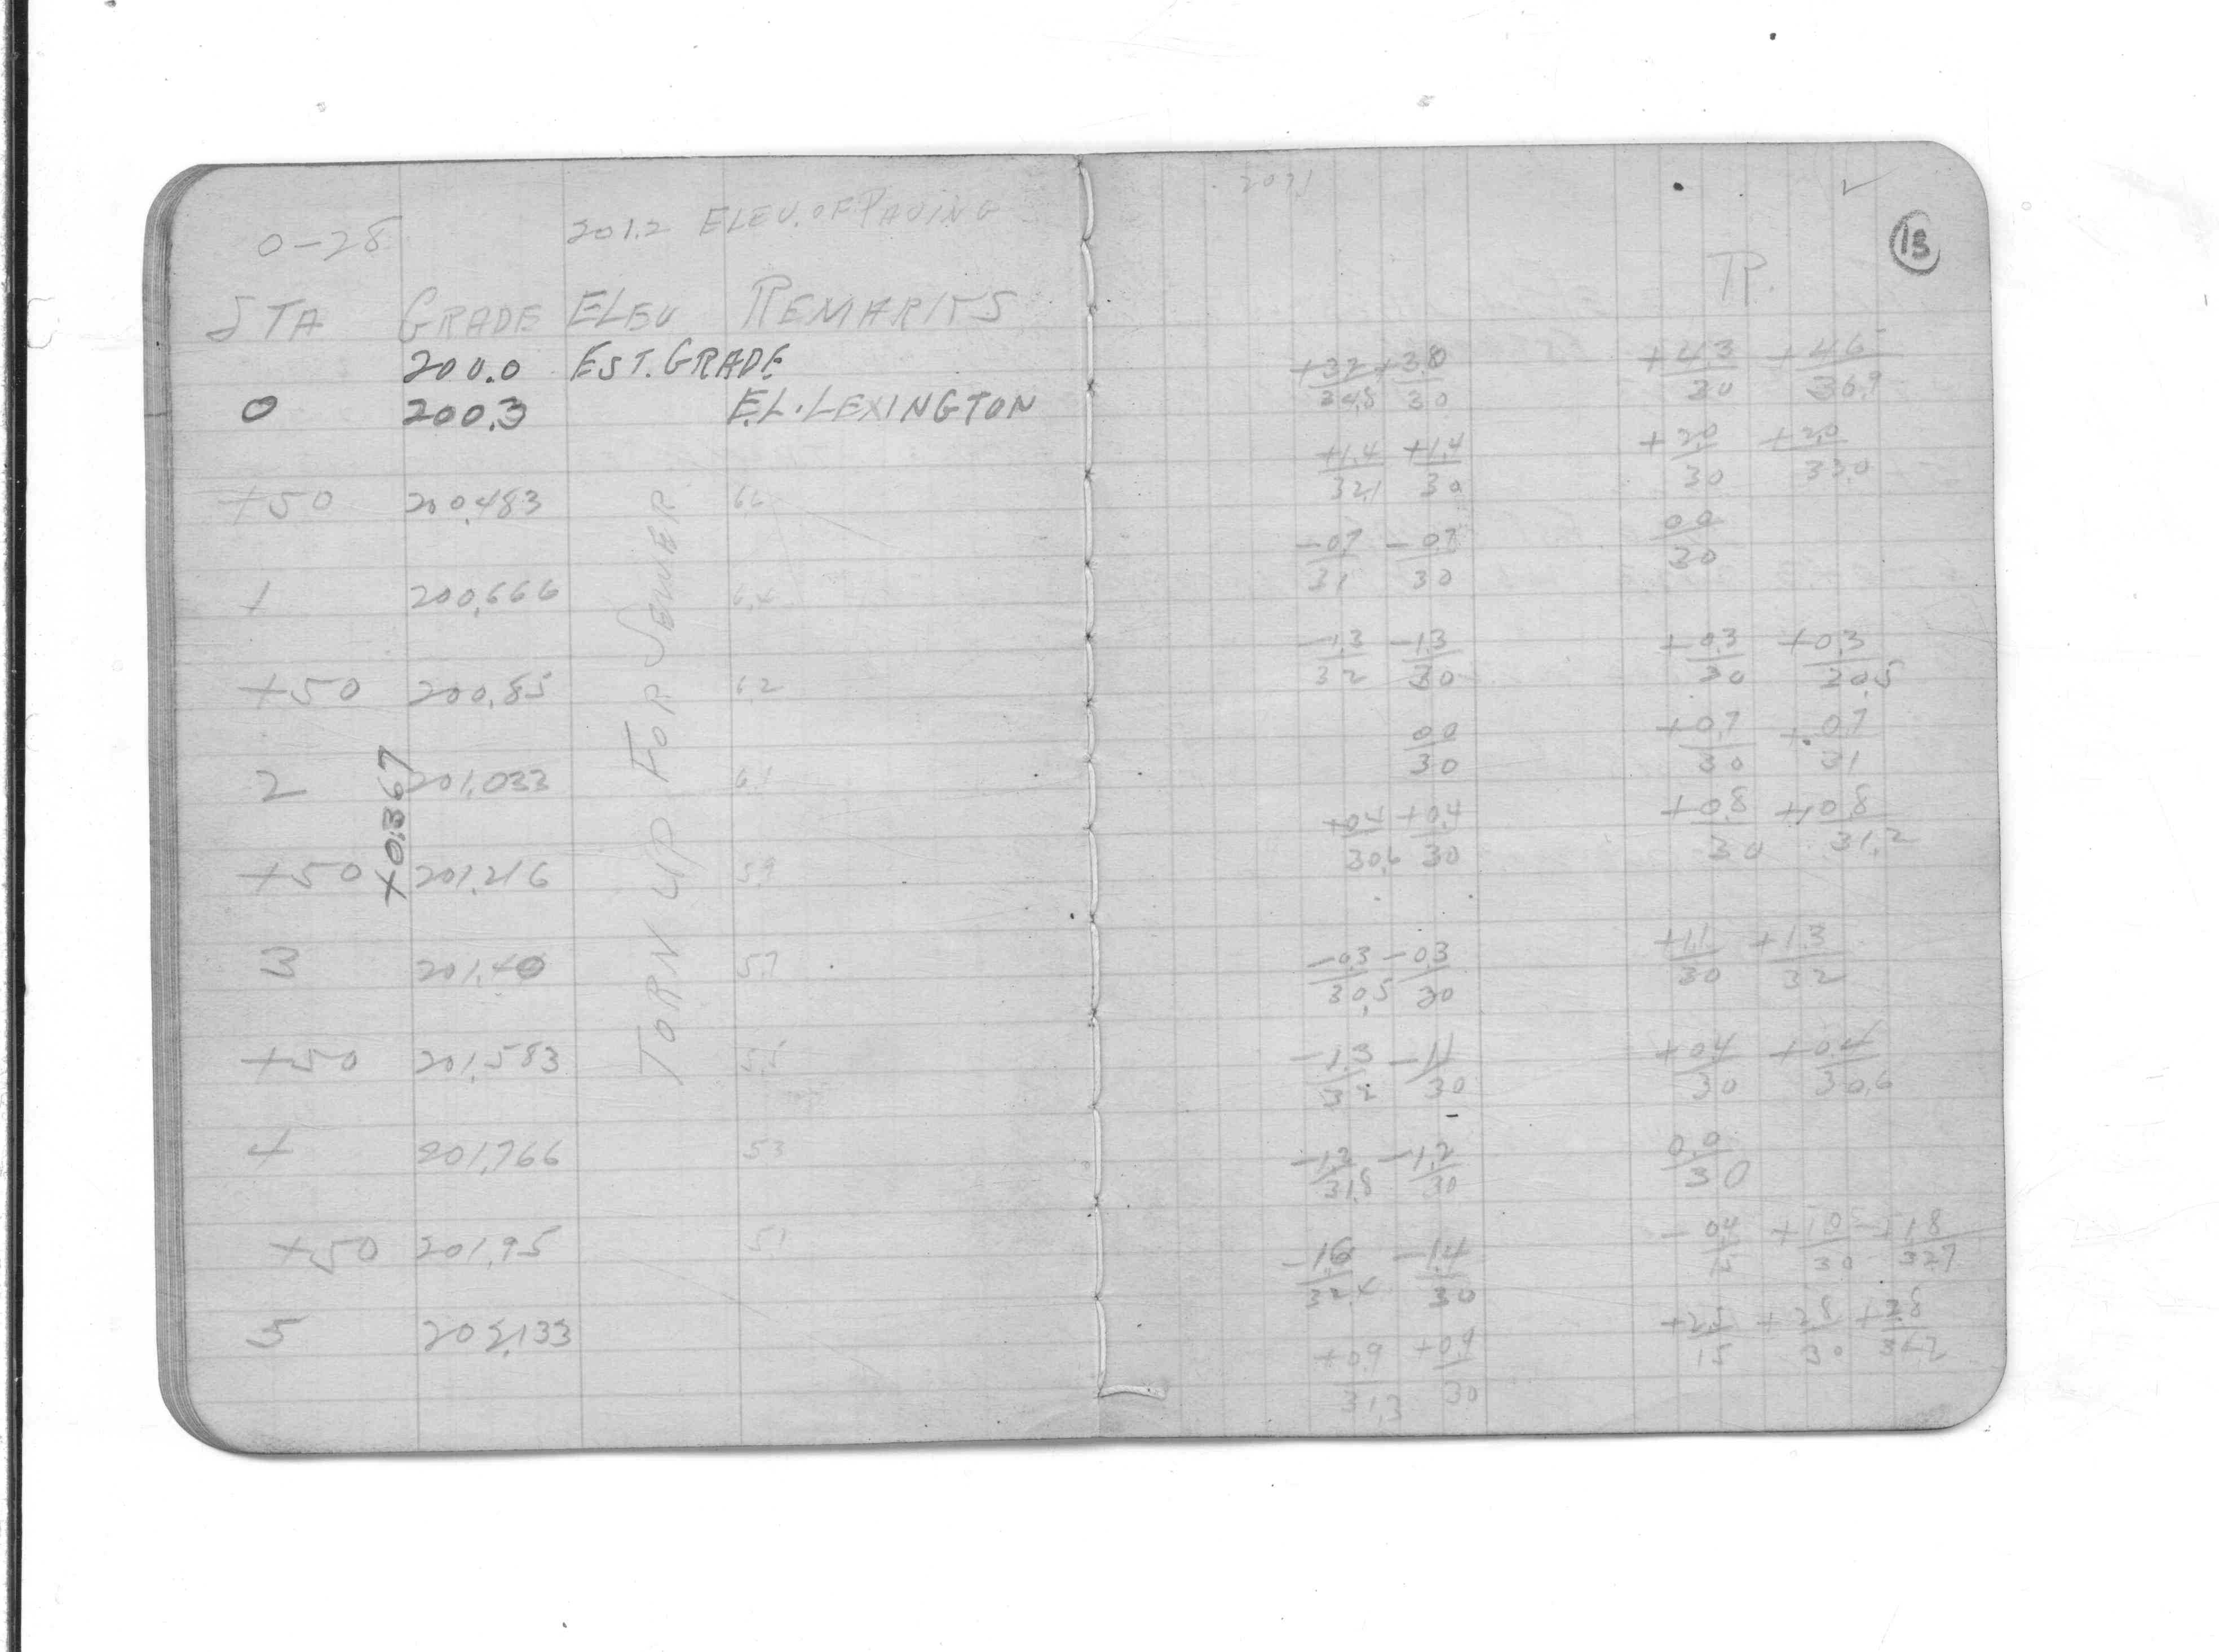 0-28 201.2 ELEV. OF PAVING
STA GRADE ELEV REMARKS
200.0 EST. GRADE
0 200.3 E.L. LEXINGTON
+50 200.483 6.6
1 200.666 6.4
+50 200.85 6.2
2 201.033 6.1
+50 201.216 5.9
3 201.40 5.7
+50 201.583 5.5
4 201.766 5.3
+50 201.95 5.1
5 202.133
+0.367
TORN UP FOR SEWER
207.1 ✓
13
TP.
+3.2/34.8 +3.0/30 +4.3/30 +4.6/36.9
+1.4/32.1 +1.4/30 +2.0/30 +2.0/33.0
-0.7/31 -0.7/30 0.0/30
-1.3/32 -1.3/30 +0.3/30 +0.3/30.5
0.0/30 +0.7/30 +0.7/31
+0.4/30.6 +0.4/30 +0.8/30 +0.8/31.2
-0.3/30.5 -0.3/30 +1.1/30 +1.3/32
-1.3/32 -1.1/30 +0.4/30 +0.4/30.6
-1.2/31.8 -1.2/30 0.0/30
-1.6/32.4 -1.4/30 -0.4/15 +1.0/30 +1.8/32.7
+0.9/31.3 +0.9/30 +2.5/15 +2.8/30 +2.8/34.2